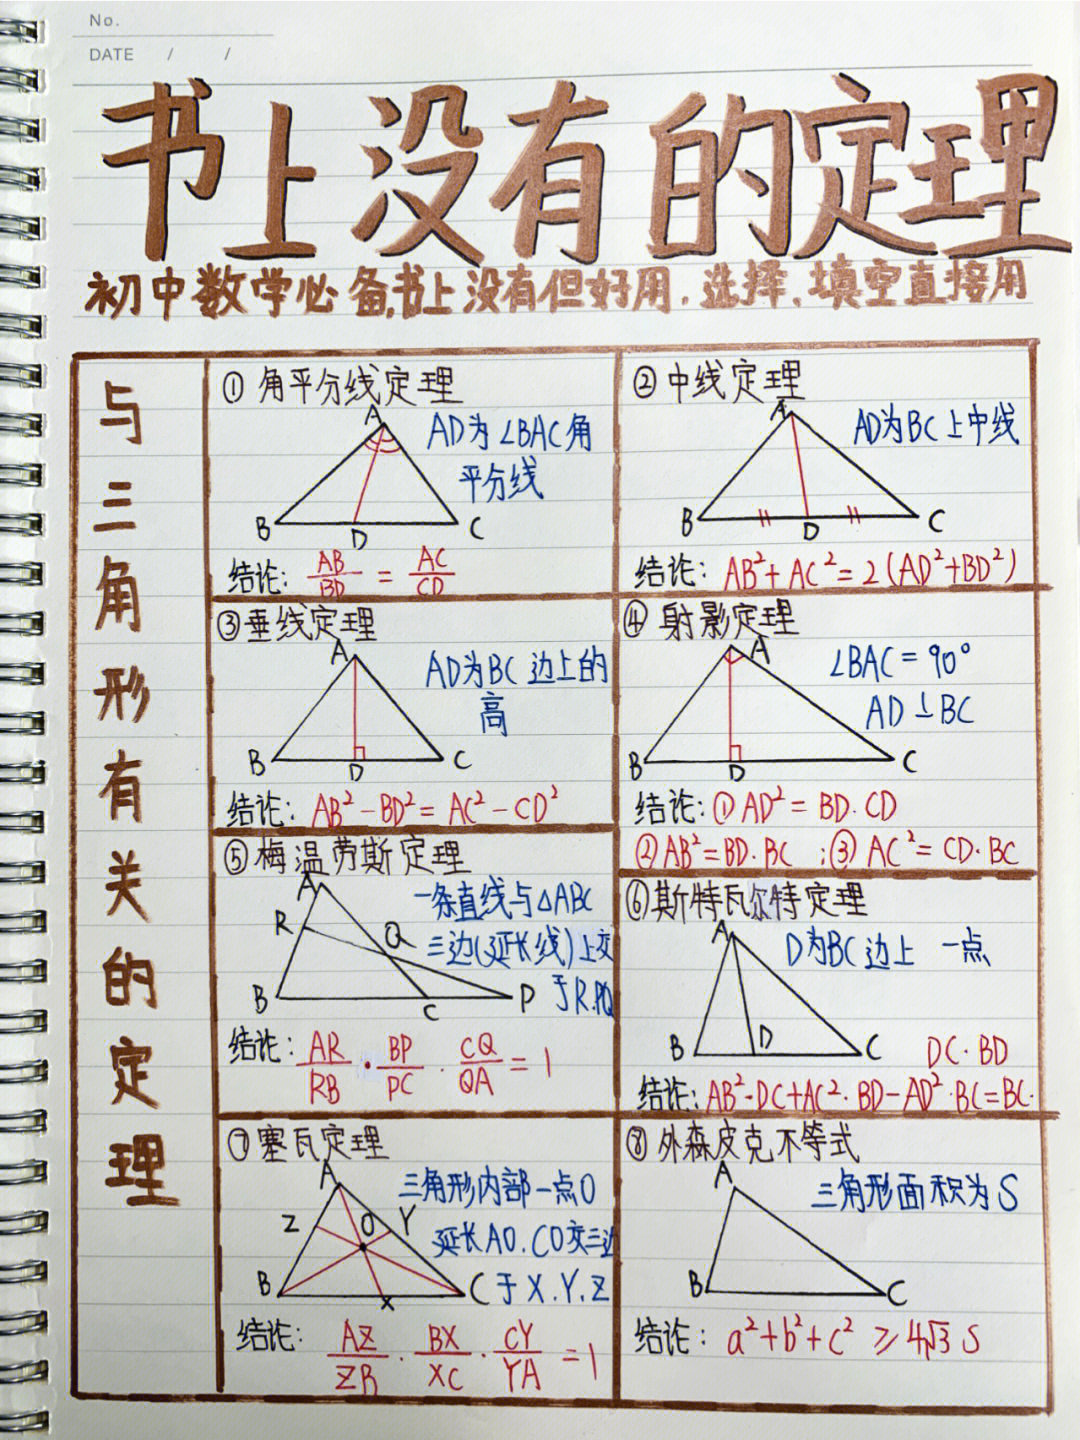 No.
DATE / /
书上没有的定理
初中数学必备,书上没有但好用,选择、填空直接用
与三角形有关的定理
① 角平分线定理
A
B
D
C
AD为∠BAC角
平分线
结论: AB/BD = AC/CD
② 中线定理
A
B
D
C
AD为BC上中线
结论: AB²+AC²=2(AD²+BD²)
③垂线定理
A
B
D
C
AD为BC边上的
高
结论: AB²-BD²=AC²-CD²
④ 射影定理
A
B
D
C
∠BAC=90°
AD⊥BC
结论:①AD²=BD·CD
②AB²=BD·BC ;③AC²=CD·BC
⑤梅涅劳斯定理
A
R
Q
B
C
P
一条直线与△ABC
三边(延长线)上交
于R.PQ
结论: AR/RB · BP/PC · CQ/QA = 1
⑥斯特瓦尔特定理
A
B
D
C
D为BC边上 一点
DC·BD
结论:AB²·DC+AC²·BD-AD²·BC=BC·
⑦塞瓦定理
A
Z
O
Y
B
X
C
三角形内部一点O
延长AO.CO交三边
于X.Y.Z
结论: AZ/ZB · BX/XC · CY/YA = 1
⑧外森皮克不等式
A
B
C
三角形面积为S
结论: a²+b²+c² ≥4√3 S